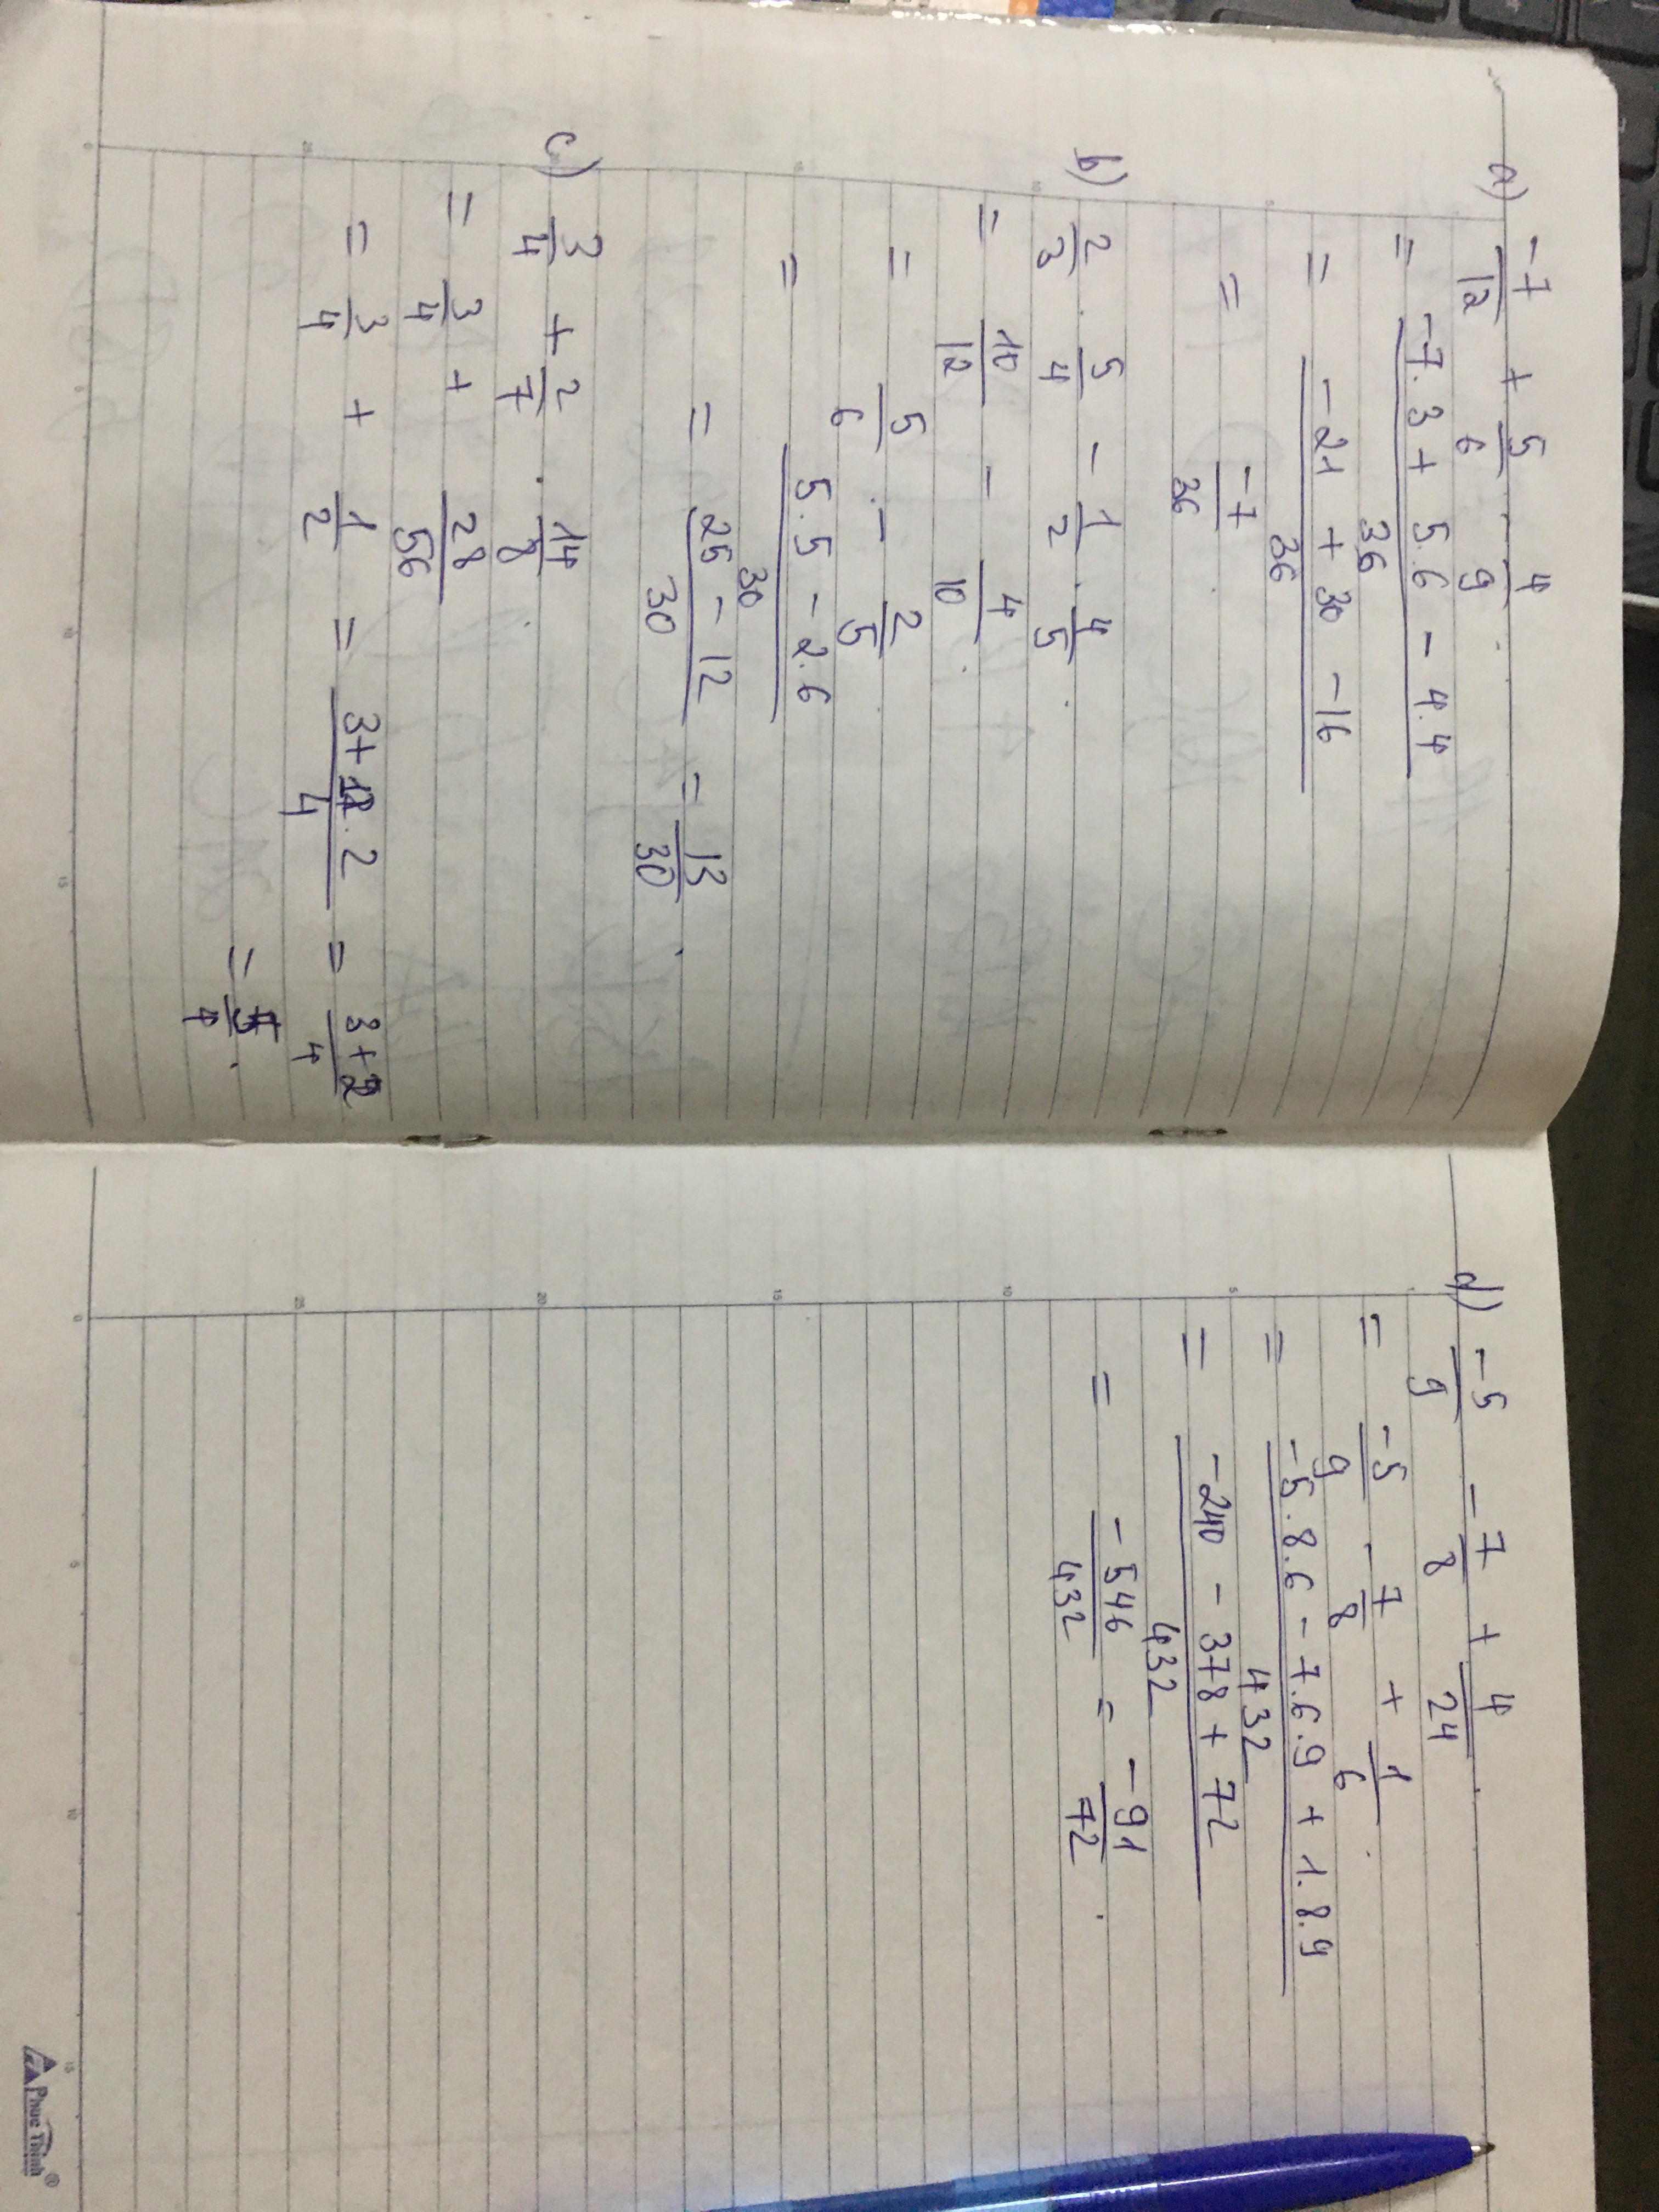 a) -7/12 + 5/6 - 4/9.
= -7.3 + 5.6 - 4.4 / 36
= -21 + 30 - 16 / 36
= -7/36
b) 2/3 . 5/4 - 1/2 . 4/5.
= 10/12 - 4/10.
= 5/6 - 2/5
= 5.5 - 2.6 / 30
= 25 - 12 / 30 = 13/30.
c) 3/4 + 2/7 . 14/8
= 3/4 + 28/56.
= 3/4 + 1/2 = 3+1.2 / 4 = 3+2 / 4
= 5/4.
d) -5/9 - 7/8 + 4/24.
= -5/9 - 7/8 + 1/6.
= -5.8.6 - 7.6.9 + 1.8.9 / 432
= -240 - 378 + 72 / 432
= -546/432 = -91/72.
Phuc Thinh®